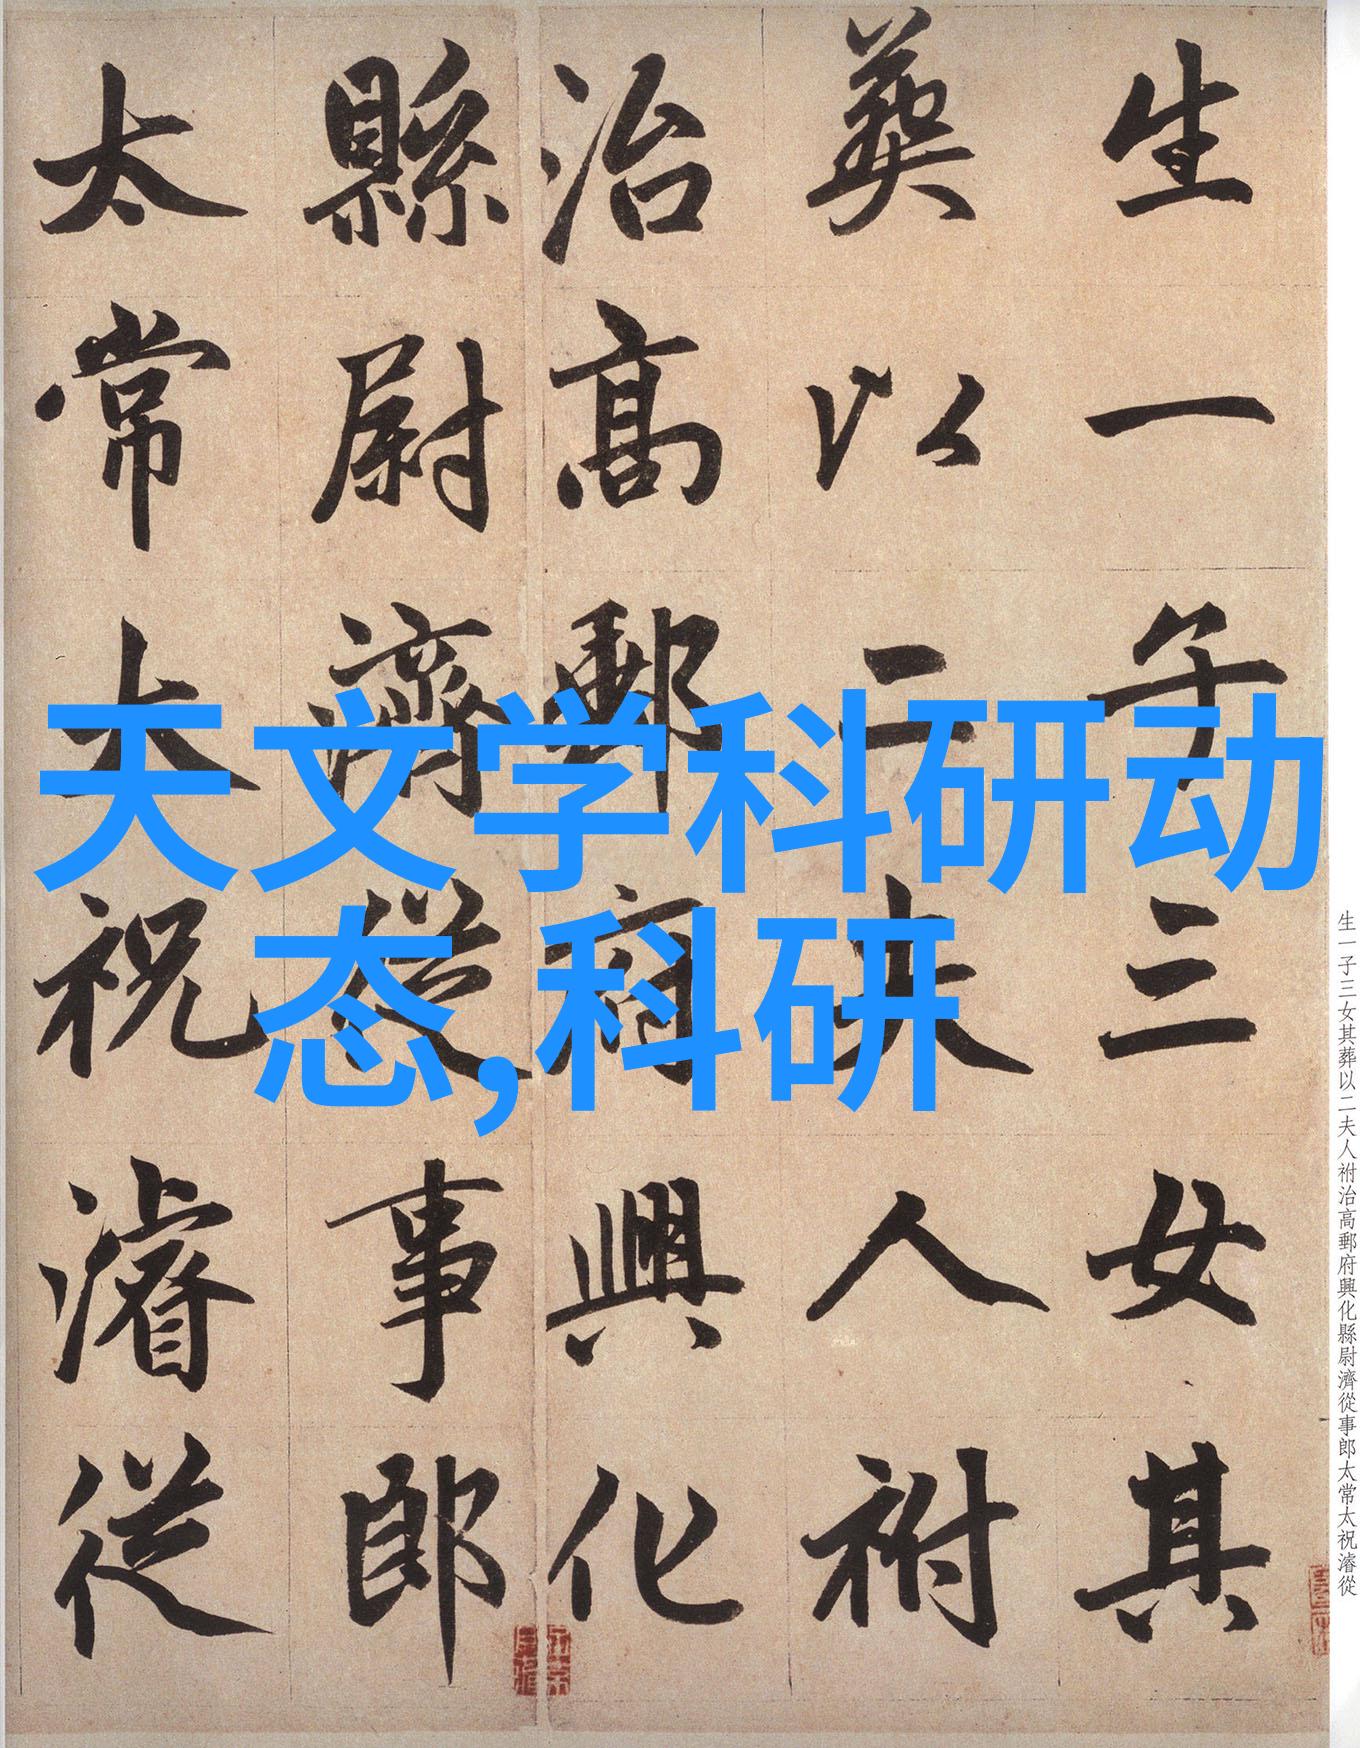 生一子三女其
葬以二夫人祔
治高郵府興化
縣尉濟從事郎
太常太祝濬從
天文学科研动
态,科研
生一子三女其葬以二夫人祔治高郵府興化縣尉濟從事郎太常太祝濬從